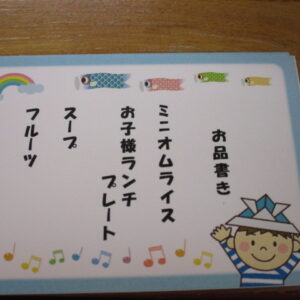 お品書き
ミニオムライス
お子様ランチ
プレート
スープ
フルーツ